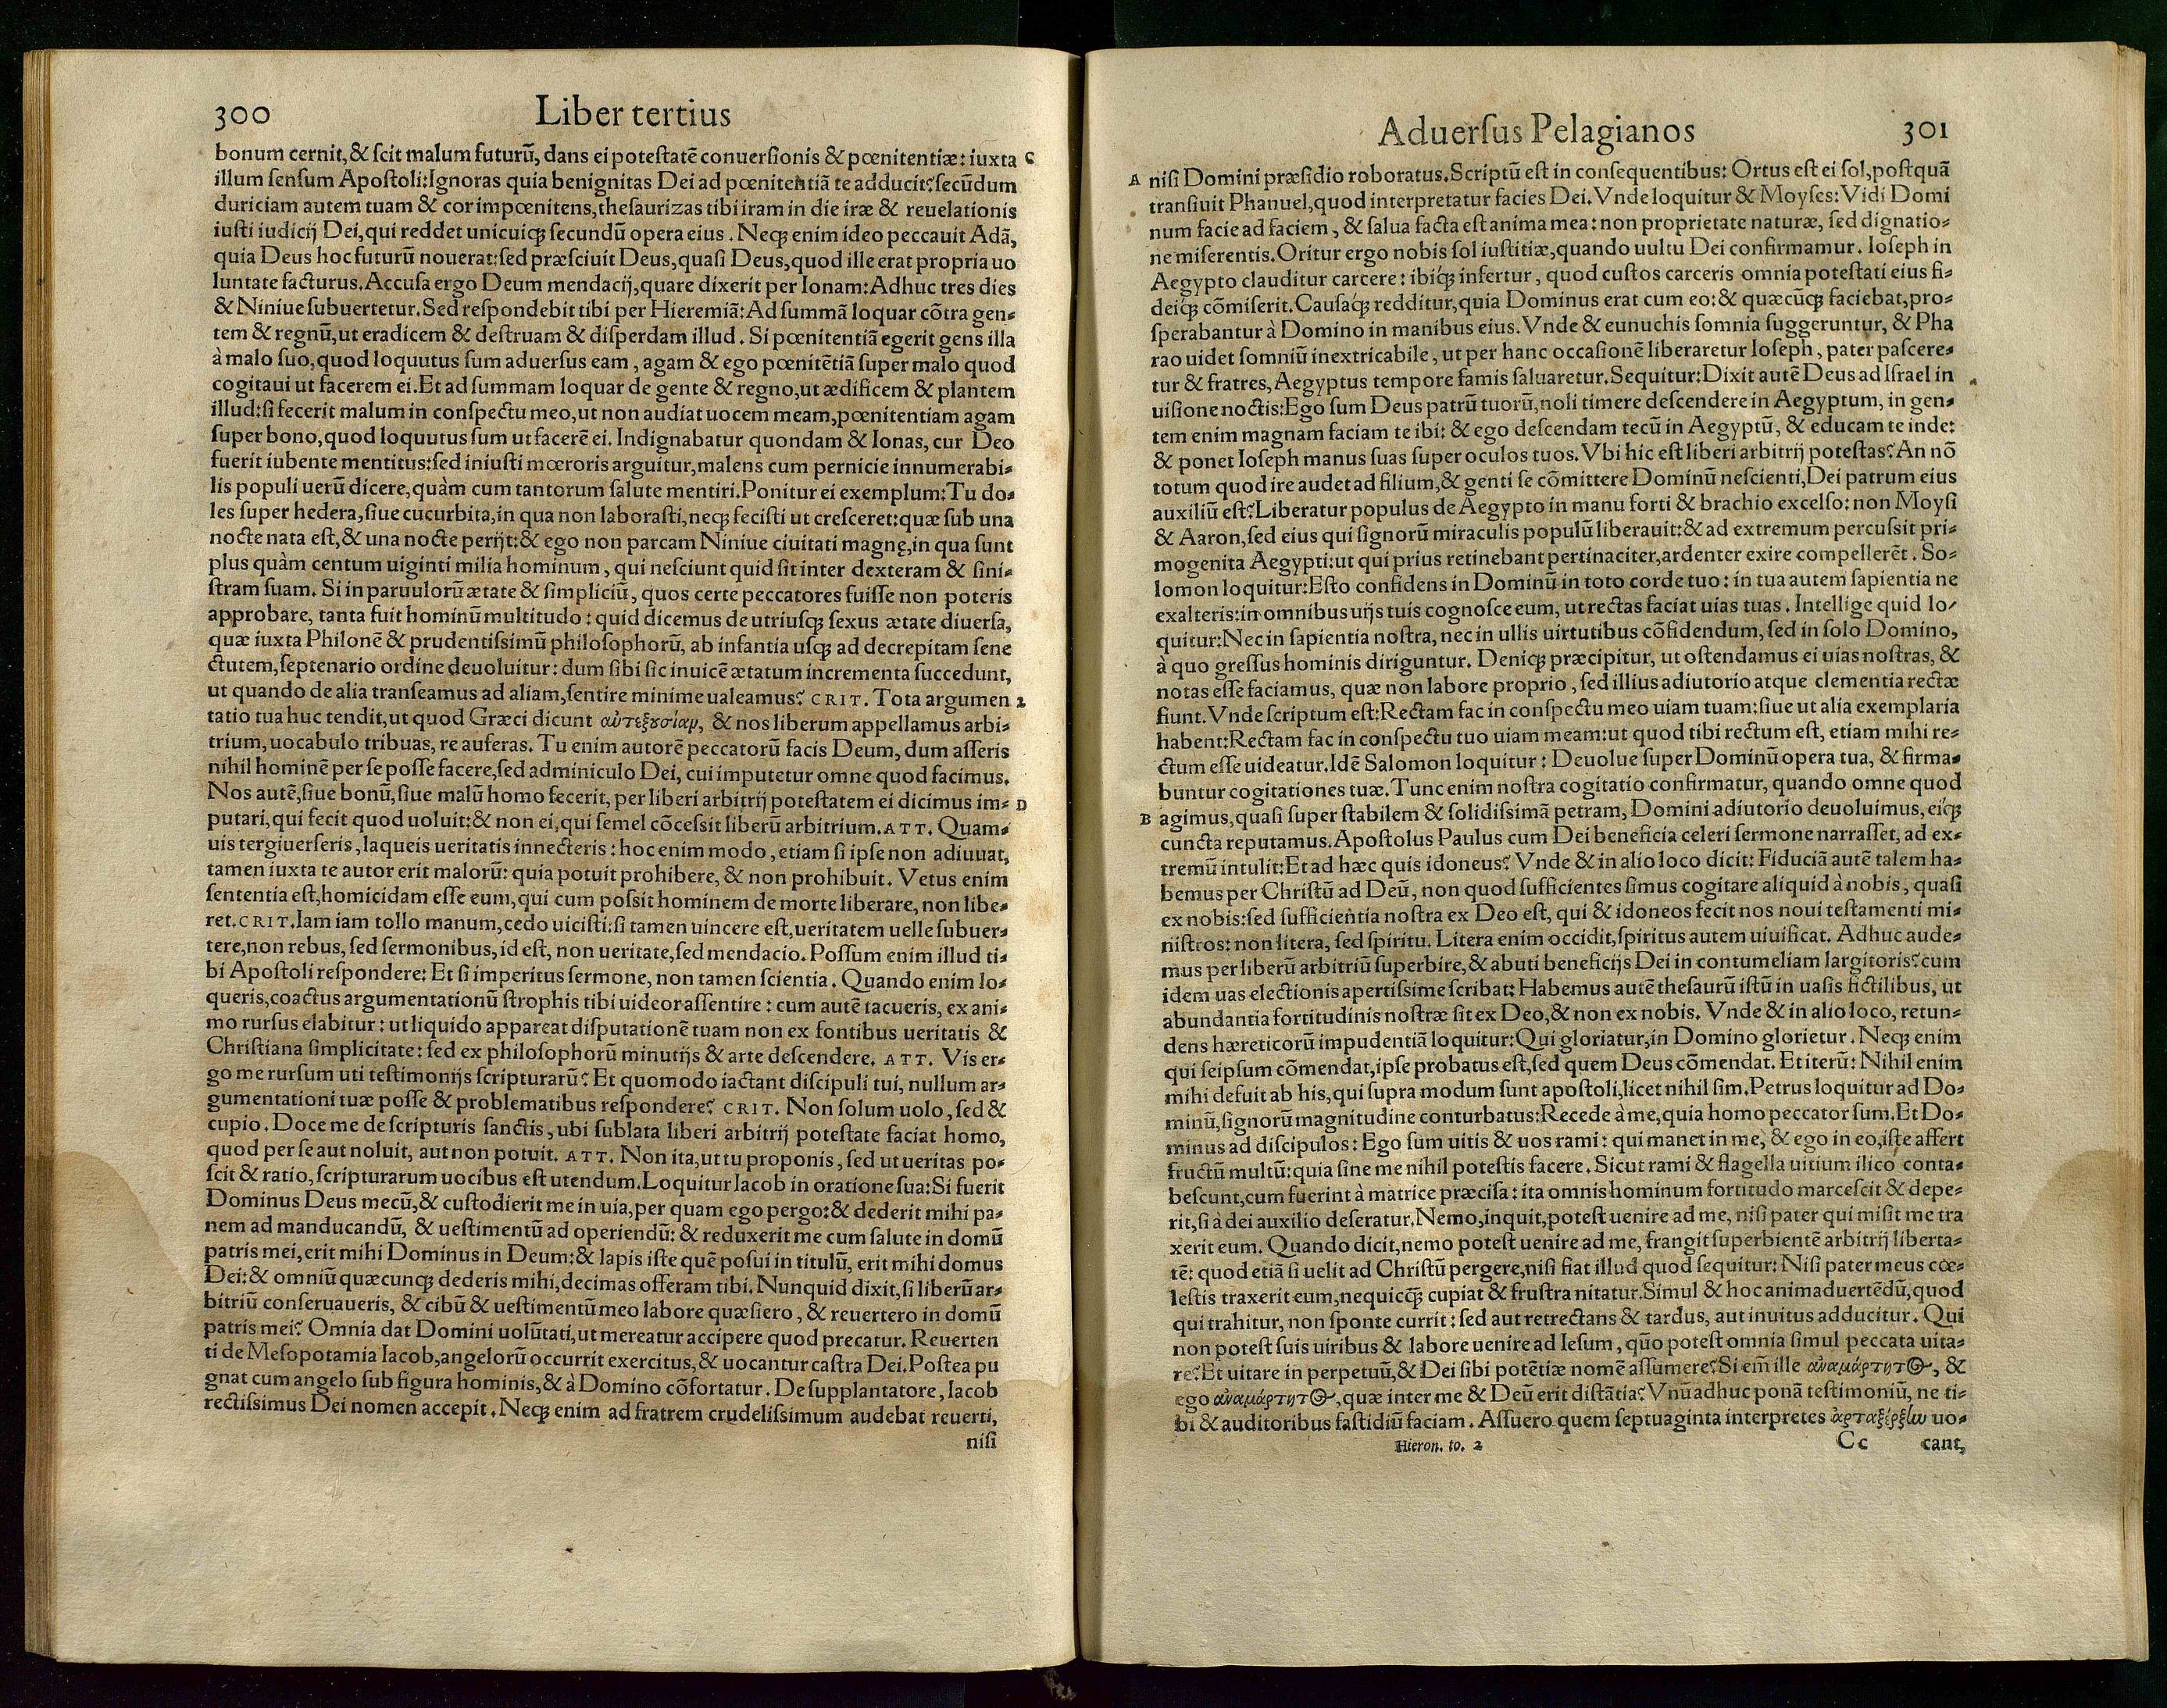 300
Liber tertius
bonum cernit, & ſcit malum futurū, dans ei poteſtatē conuerſionis & pœnitentiæ: iuxta C
illum ſenſum Apoſtoli: Ignoras quia benignitas Dei ad pœnitentiā te adducit? ſecūdum
duriciam autem tuam & cor impœnitens, theſaurizas tibi iram in die iræ & reuelationis
iuſti iudicij Dei, qui reddet unicuiqꝫ ſecundū opera eius. Neqꝫ enim ideo peccauit Adā,
quia Deus hoc futurū nouerat: ſed præſciuit Deus, quaſi Deus, quod ille erat propria uo
luntate facturus. Accuſa ergo Deum mendacij, quare dixerit per Ionam: Adhuc tres dies
& Niniue ſubuertetur. Sed reſpondebit tibi per Hieremiā: Ad ſummā loquar cōtra gen-
tem & regnū, ut eradicem & deſtruam & diſperdam illud. Si pœnitentiā egerit gens illa
à malo ſuo, quod loquutus ſum aduerſus eam, agam & ego pœnitētiā ſuper malo quod
cogitaui ut facerem ei. Et ad ſummam loquar de gente & regno, ut ædificem & plantem
illud: ſi fecerit malum in conſpectu meo, ut non audiat uocem meam, pœnitentiam agam
ſuper bono, quod loquutus ſum ut facerē ei. Indignabatur quondam & Ionas, cur Deo
fuerit iubente mentitus: ſed iniuſti mœroris arguitur, malens cum pernicie innumerabi-
lis populi uerū dicere, quàm cum tantorum ſalute mentiri. Ponitur ei exemplum: Tu do-
les ſuper hedera, ſiue cucurbita, in qua non laboraſti, neqꝫ feciſti ut creſceret: quæ ſub una
nocte nata eſt, & una nocte perijt: & ego non parcam Niniue ciuitati magnę, in qua ſunt
plus quàm centum uiginti milia hominum, qui neſciunt quid ſit inter dexteram & ſini-
ſtram ſuam. Si in paruulorū ætate & ſimpliciū, quos certe peccatores fuiſſe non poteris
approbare, tanta fuit hominū multitudo: quid dicemus de utriuſqꝫ ſexus ætate diuerſa,
quæ iuxta Philonē & prudentiſsimū philoſophorū, ab infantia uſqꝫ ad decrepitam ſene
ctutem, ſeptenario ordine deuoluitur: dum ſibi ſic inuicē ætatum incrementa ſuccedunt,
ut quando de alia tranſeamus ad aliam, ſentire minime ualeamus? CRIT. Tota argumen 2
tatio tua huc tendit, ut quod Græci dicunt αὐτεξουσίαν, & nos liberum appellamus arbi-
trium, uocabulo tribuas, re auferas. Tu enim autorē peccatorū facis Deum, dum aſſeris
nihil hominē per ſe poſſe facere, ſed adminiculo Dei, cui imputetur omne quod facimus.
Nos autē, ſiue bonū, ſiue malū homo fecerit, per liberi arbitrij poteſtatem ei dicimus im- D
putari, qui fecit quod uoluit: & non ei, qui ſemel cōceſsit liberū arbitrium. ATT. Quam-
uis tergiuerſeris, laqueis ueritatis innecteris: hoc enim modo, etiam ſi ipſe non adiuuat,
tamen iuxta te autor erit malorū: quia potuit prohibere, & non prohibuit. Vetus enim
ſententia eſt, homicidam eſſe eum, qui cum poſsit hominem de morte liberare, non libe-
ret. CRIT. Iam iam tollo manum, cedo uiciſti: ſi tamen uincere eſt, ueritatem uelle ſubuer-
tere, non rebus, ſed ſermonibus, id eſt, non ueritate, ſed mendacio. Poſſum enim illud ti-
bi Apoſtoli reſpondere: Et ſi imperitus ſermone, non tamen ſcientia. Quando enim lo-
queris, coactus argumentationū ſtrophis tibi uideor aſſentire: cum autē tacueris, ex ani-
mo rurſus elabitur: ut liquido appareat diſputationē tuam non ex fontibus ueritatis &
Chriſtiana ſimplicitate: ſed ex philoſophorū minutijs & arte deſcendere. ATT. Vis er-
go me rurſum uti teſtimonijs ſcripturarū? Et quomodo iactant diſcipuli tui, nullum ar-
gumentationi tuæ poſſe & problematibus reſpondere? CRIT. Non ſolum uolo, ſed &
cupio. Doce me de ſcripturis ſanctis, ubi ſublata liberi arbitrij poteſtate faciat homo,
quod per ſe aut noluit, aut non potuit. ATT. Non ita, ut tu proponis, ſed ut ueritas po-
ſcit & ratio, ſcripturarum uocibus eſt utendum. Loquitur Iacob in oratione ſua: Si fuerit
Dominus Deus mecū, & cuſtodierit me in uia, per quam ego pergo: & dederit mihi pa-
nem ad manducandū, & ueſtimentū ad operiendū: & reduxerit me cum ſalute in domū
patris mei, erit mihi Dominus in Deum: & lapis iſte quē poſui in titulū, erit mihi domus
Dei: & omniū quæcunqꝫ dederis mihi, decimas offeram tibi. Nunquid dixit, ſi liberū ar-
bitriū conſeruaueris, & cibū & ueſtimentū meo labore quæſiero, & reuertero in domū
patris mei? Omnia dat Domini uolūtati, ut mereatur accipere quod precatur. Reuerten
ti de Meſopotamia Iacob, angelorū occurrit exercitus, & uocantur caſtra Dei. Poſtea pu
gnat cum angelo ſub figura hominis, & à Domino cōfortatur. De ſupplantatore, Iacob
rectiſsimus Dei nomen accepit. Neqꝫ enim ad fratrem crudeliſsimum audebat reuerti,
niſi
Aduerſus Pelagianos
301
A niſi Domini præſidio roboratus. Scriptū eſt in conſequentibus: Ortus eſt ei ſol, poſtquā
tranſiuit Phanuel, quod interpretatur facies Dei. Vnde loquitur & Moyſes: Vidi Domi
num facie ad faciem, & ſalua facta eſt anima mea: non proprietate naturæ, ſed dignatio-
ne miſerentis. Oritur ergo nobis ſol iuſtitiæ, quando uultu Dei confirmamur. Ioſeph in
Aegypto clauditur carcere: ibiq́ꝫ infertur, quod cuſtos carceris omnia poteſtati eius fi-
deiq́ꝫ cōmiſerit. Cauſaq́ꝫ redditur, quia Dominus erat cum eo: & quæcūqꝫ faciebat, pro-
ſperabantur à Domino in manibus eius. Vnde & eunuchis ſomnia ſuggeruntur, & Pha
rao uidet ſomniū inextricabile, ut per hanc occaſionē liberaretur Ioſeph, pater paſcere-
tur & fratres, Aegyptus tempore famis ſaluaretur. Sequitur: Dixit autē Deus ad Iſrael in
uiſione noctis: Ego ſum Deus patrū tuorū, noli timere deſcendere in Aegyptum, in gen-
tem enim magnam faciam te ibi: & ego deſcendam tecū in Aegyptū, & educam te inde:
& ponet Ioſeph manus ſuas ſuper oculos tuos. Vbi hic eſt liberi arbitrij poteſtas? An nō
totum quod ire audet ad filium, & genti ſe cōmittere Dominū neſcienti, Dei patrum eius
auxiliū eſt? Liberatur populus de Aegypto in manu forti & brachio excelſo: non Moyſi
& Aaron, ſed eius qui ſignorū miraculis populū liberauit: & ad extremum percuſsit pri-
mogenita Aegypti: ut qui prius retinebant pertinaciter, ardenter exire compellerēt. So-
lomon loquitur: Eſto confidens in Dominū in toto corde tuo: in tua autem ſapientia ne
exalteris: in omnibus uijs tuis cognoſce eum, ut rectas faciat uias tuas. Intellige quid lo-
quitur: Nec in ſapientia noſtra, nec in ullis uirtutibus cōfidendum, ſed in ſolo Domino,
à quo greſſus hominis diriguntur. Deniqꝫ præcipitur, ut oſtendamus ei uias noſtras, &
notas eſſe faciamus, quæ non labore proprio, ſed illius adiutorio atque clementia rectæ
fiunt. Vnde ſcriptum eſt: Rectam fac in conſpectu meo uiam tuam: ſiue ut alia exemplaria
habent: Rectam fac in conſpectu tuo uiam meam: ut quod tibi rectum eſt, etiam mihi re-
ctum eſſe uideatur. Idē Salomon loquitur: Deuolue ſuper Dominū opera tua, & firma-
buntur cogitationes tuæ. Tunc enim noſtra cogitatio confirmatur, quando omne quod
B agimus, quaſi ſuper ſtabilem & ſolidiſsimā petram, Domini adiutorio deuoluimus, eiq́ꝫ
cuncta reputamus. Apoſtolus Paulus cum Dei beneficia celeri ſermone narraſſet, ad ex-
tremū intulit: Et ad hæc quis idoneus? Vnde & in alio loco dicit: Fiduciā autē talem ha-
bemus per Chriſtū ad Deū, non quod ſufficientes ſimus cogitare aliquid à nobis, quaſi
ex nobis: ſed ſufficientia noſtra ex Deo eſt, qui & idoneos fecit nos noui teſtamenti mi-
niſtros: non litera, ſed ſpiritu. Litera enim occidit, ſpiritus autem uiuificat. Adhuc aude-
mus per liberū arbitriū ſuperbire, & abuti beneficijs Dei in contumeliam largitoris? cum
idem uas electionis apertiſsime ſcribat: Habemus autē theſaurū iſtū in uaſis fictilibus, ut
abundantia fortitudinis noſtræ ſit ex Deo, & non ex nobis. Vnde & in alio loco, retun-
dens hæreticorū impudentiā loquitur: Qui gloriatur, in Domino glorietur. Neqꝫ enim
qui ſeipſum cōmendat, ipſe probatus eſt, ſed quem Deus cōmendat. Et iterū: Nihil enim
mihi defuit ab his, qui ſupra modum ſunt apoſtoli, licet nihil ſim. Petrus loquitur ad Do-
minū, ſignorū magnitudine conturbatus: Recede à me, quia homo peccator ſum. Et Do-
minus ad diſcipulos: Ego ſum uitis & uos rami: qui manet in me, & ego in eo, iſte affert
fructū multū: quia ſine me nihil poteſtis facere. Sicut rami & flagella uitium ilico conta-
beſcunt, cum fuerint à matrice præciſa: ita omnis hominum fortitudo marceſcit & depe-
rit, ſi à dei auxilio deſeratur. Nemo, inquit, poteſt uenire ad me, niſi pater qui miſit me tra
xerit eum. Quando dicit, nemo poteſt uenire ad me, frangit ſuperbientē arbitrij liberta-
tē: quod etiā ſi uelit ad Chriſtū pergere, niſi fiat illud quod ſequitur: Niſi pater meus cœ-
leſtis traxerit eum, nequicq̄ꝫ cupiat & fruſtra nitatur. Simul & hoc animaduertēdū, quod
qui trahitur, non ſponte currit: ſed aut retrectans & tardus, aut inuitus adducitur. Qui
non poteſt ſuis uiribus & labore uenire ad Ieſum, qūo poteſt omnia ſimul peccata uita-
re? Et uitare in perpetuū, & Dei ſibi potētiæ nomē aſſumere? Si em̄ ille ἀναμάρτητος, &
ego ἀναμάρτητος, quæ inter me & Deū erit diſtātia? Vnū adhuc ponā teſtimoniū, ne ti-
bi & auditoribus faſtidiū faciam. Aſſuero quem ſeptuaginta interpretes ἀρταξέρξίω uo-
Hieron. to. 2
Cc
cant,